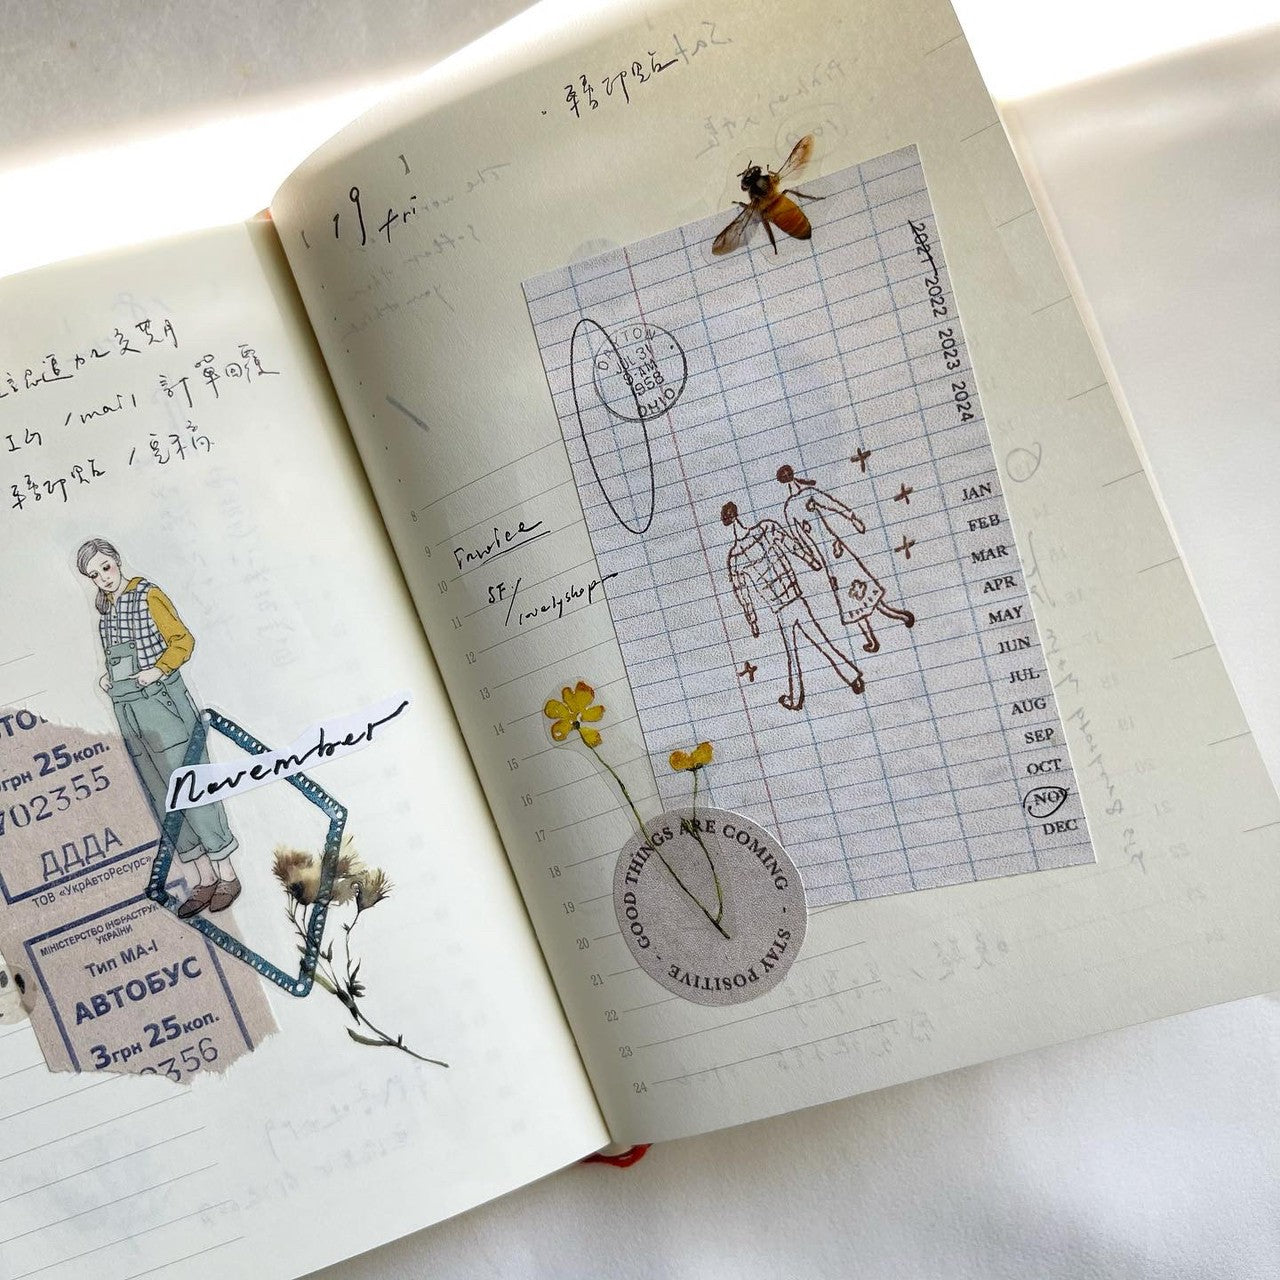 轉印貼
mail 訂單回覆
轉印貼 / 完稿
November
25коп.
702355
ДДДА
ТОВ «УкрАвтоРесурс»
МІНІСТЕРСТВО ІНФРАСТРУК
УКРАЇНИ
Тип МА-І
АВТОБУС
3грн 25коп.
2356
· 轉印貼
19 fri
Invoice
SF /
lovelyshop
8
9
10
11
12
13
14
15
16
17
18
19
20
21
22
23
24
DAYTON
JUL 31
9 AM
1958
OHIO
2021 2022 2023 2024
JAN
FEB
MAR
APR
MAY
JUN
JUL
AUG
SEP
OCT
NOV
DEC
GOOD THINGS ARE COMING - STAY POSITIVE -